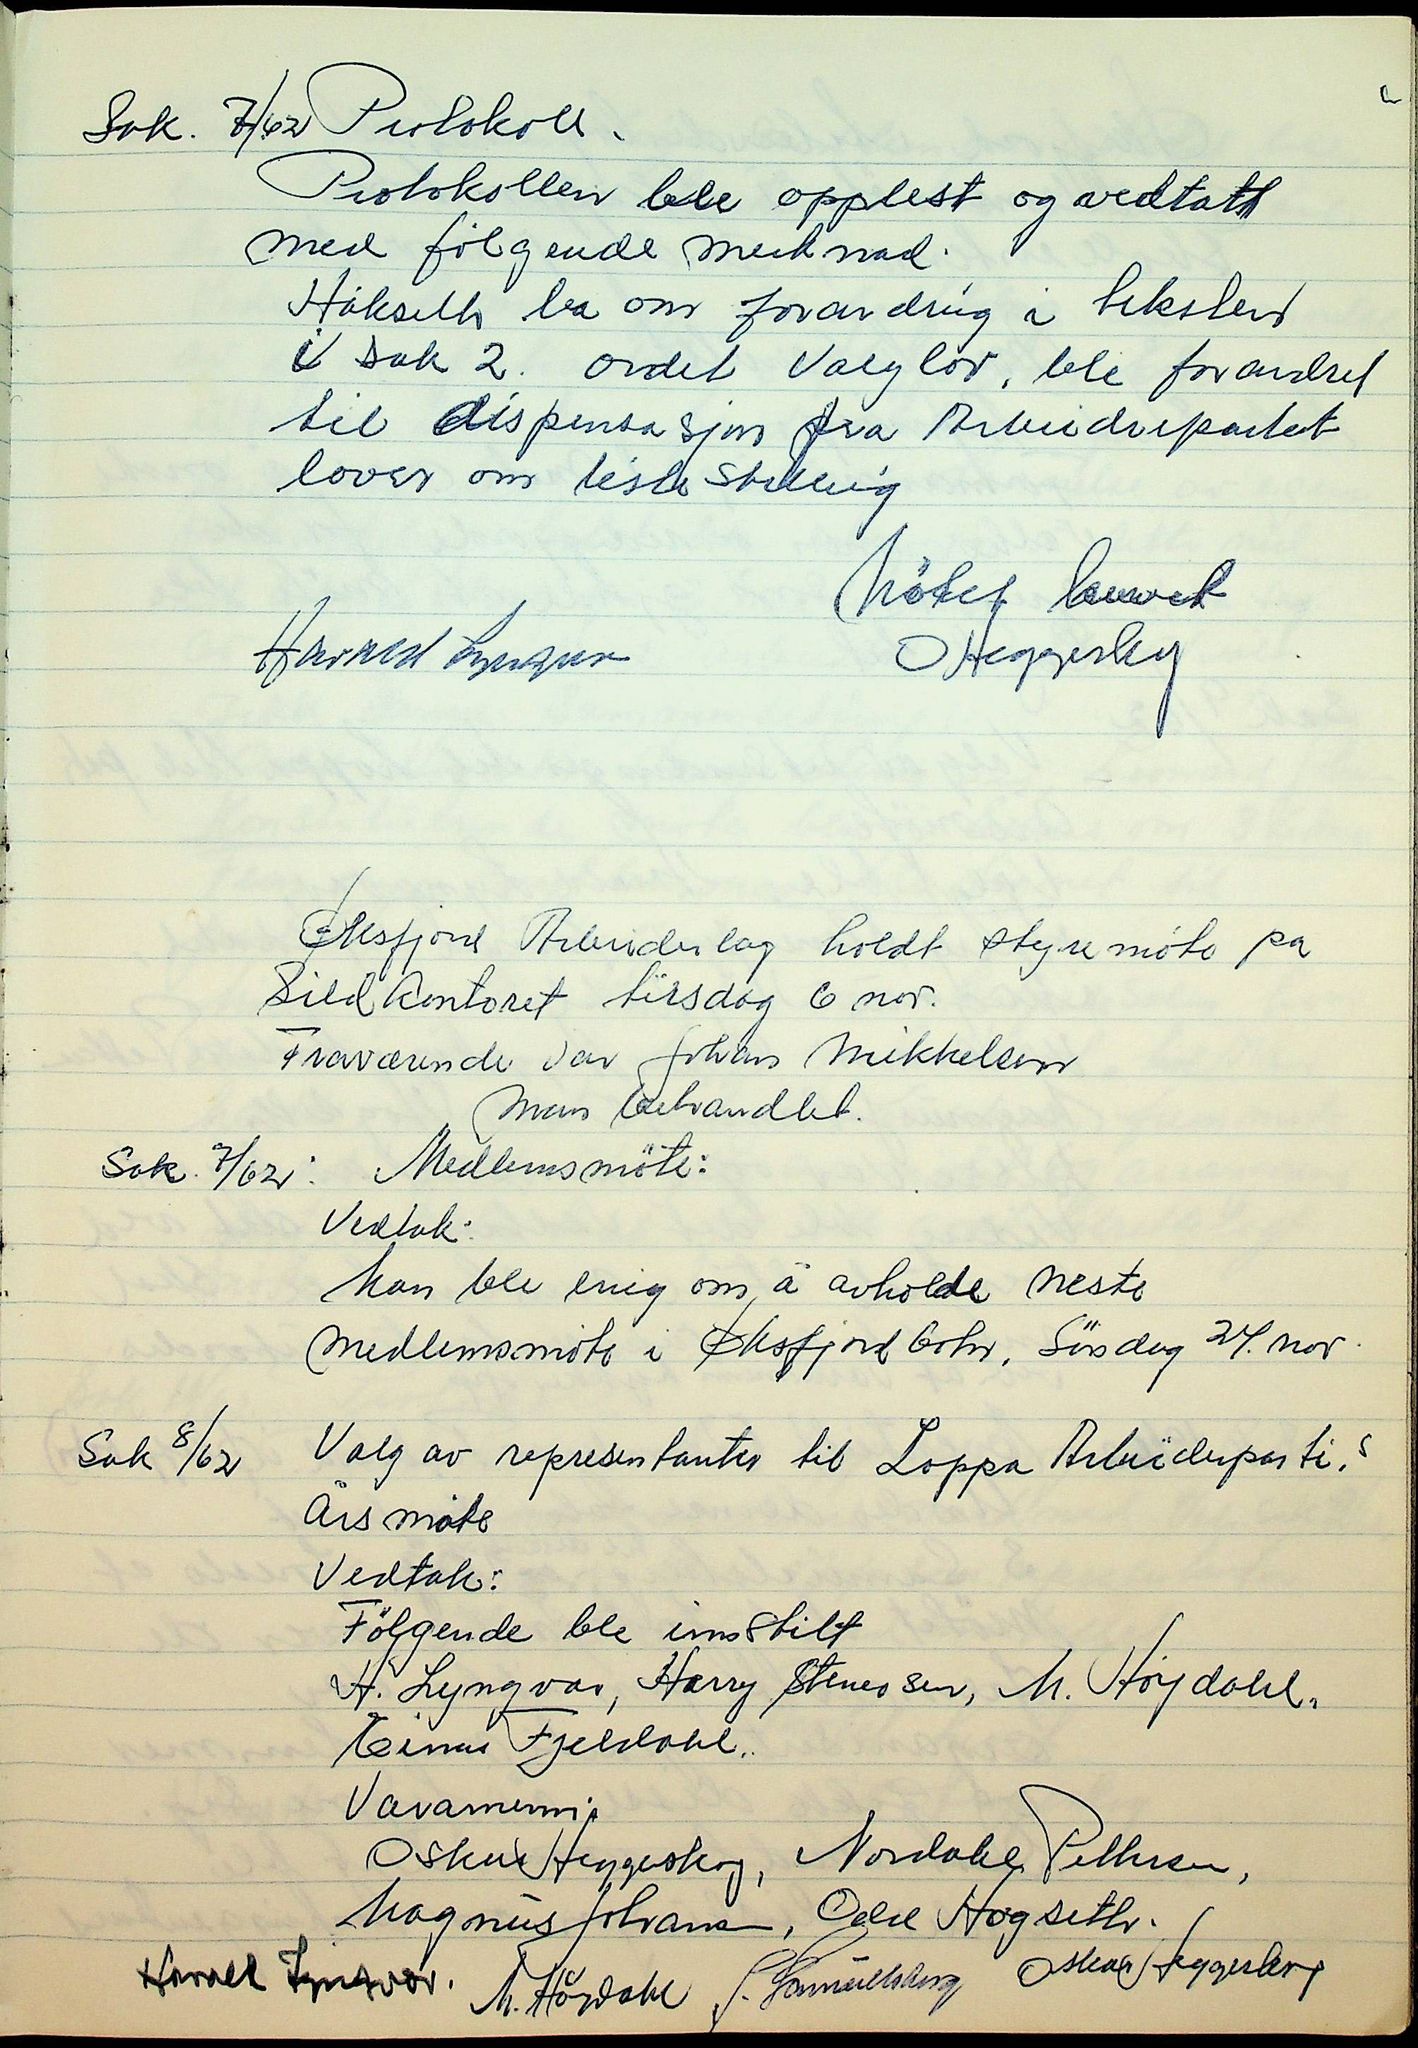 Sak. 7/62 Protokoll.
Protokollen ble opplest og vedtatt
med følgende merknad.
Håkseth ba om forandring i teksten
i sak 2. ordet Valglov, ble forandret
til dispensasjon fra Arbeiderpartiet
lover om liste stilling
Møtet hevet
Harald Lyngvar OHeggerskog
Øksfjord Arbeiderlag holdt styremöte på
Sildkontoret tirsdag 6 nov.
Fraværende var Johan Mikkelsen
Man behandlet.
Sak. 7/62: Medlemsmöte:
Vedtak:
Man ble enig om, å avholde neste
medlemsmöte i Øksfjordbotn, Söndag 24. nov.
Sak 8/62 Valg av representanter til Loppa Arbeiderparti.s
Årsmöte
Vedtak:
Fölgende ble innstilt
H. Lyngvar, Harry Stenersen, M. Höydahl.
Einar Fjeldahl..
Varamenn:
Oskar Heggerskog, Nordahl Pettersen,
Magnus Johans, Odd Hogseth.
Harald Lyngvar. M. Höydahl J. Samuelsberg Oskar Heggerskog